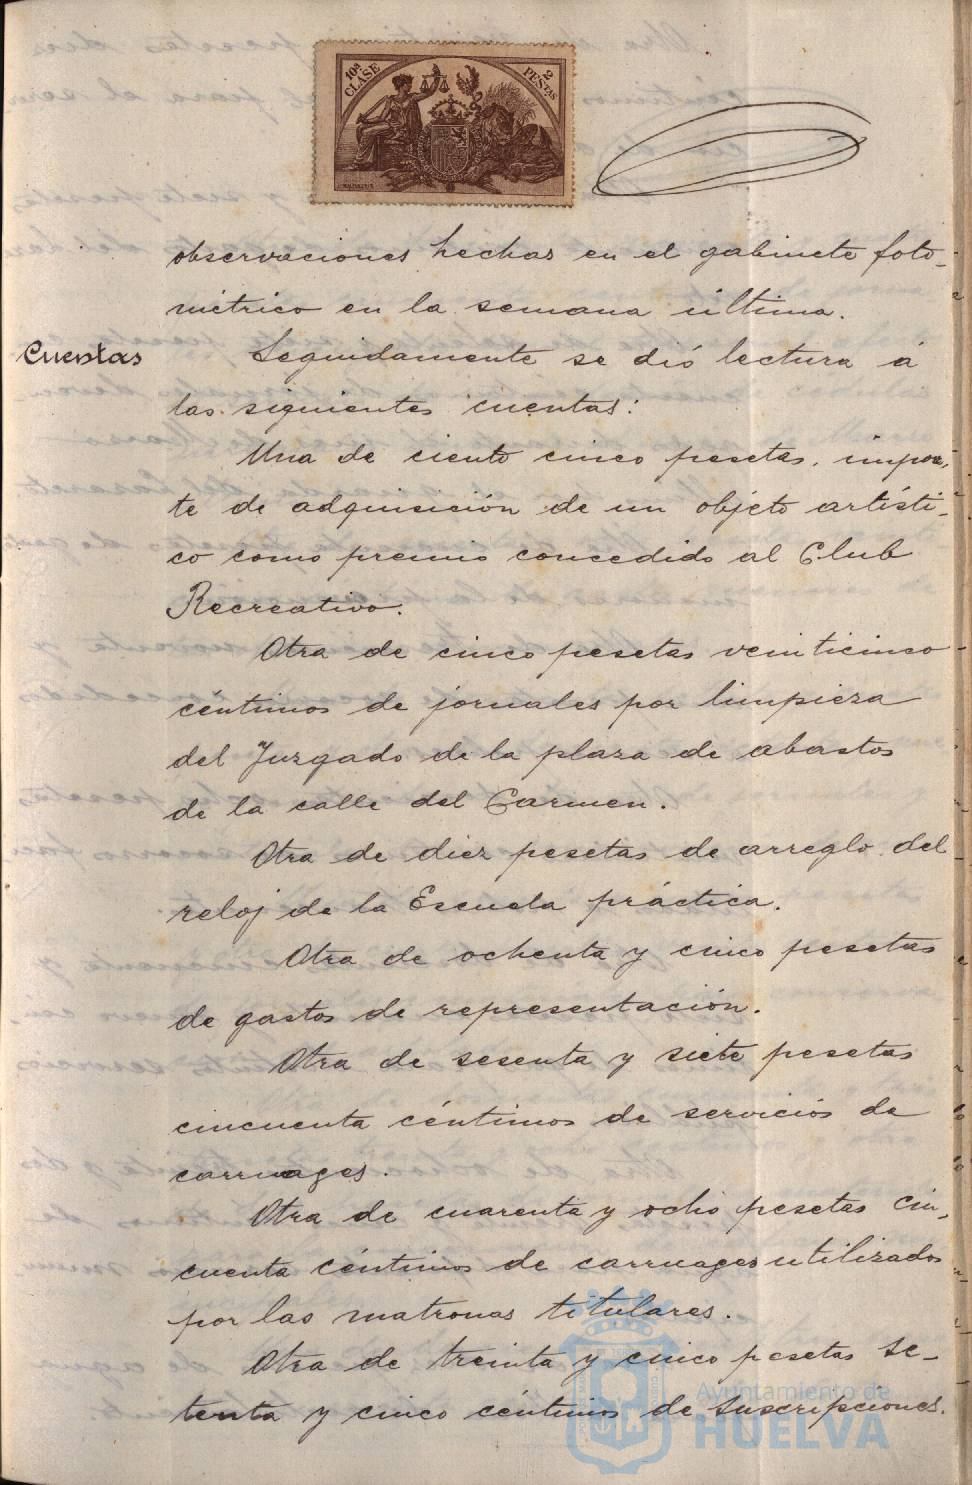 10ª CLASE
2 PESTAS
observaciones hechas en el gabinete foto-
métrico en la semana última.
Cuentas
Seguidamente se dió lectura á
las siguientes cuentas:
Una de ciento cinco pesetas, impor-
te de adquisición de un objeto artísti-
co como premio concedido al Club
Recreativo.
Otra de cinco pesetas veinticinco
céntimos de jornales por limpieza
del Juzgado de la plaza de abastos
de la calle del Carmen.
Otra de diez pesetas de arreglo del
reloj de la Escuela práctica.
Otra de ochenta y cinco pesetas
de gastos de representación.
Otra de sesenta y siete pesetas
cincuenta céntimos de servicios de
carruages.
Otra de cuarenta y ocho pesetas cin-
cuenta céntimos de carruages utilizados
por las matronas titulares.
Otra de treinta y cinco pesetas se-
tenta y cinco céntimos de suscripciones.
Ayuntamiento de
HUELVA